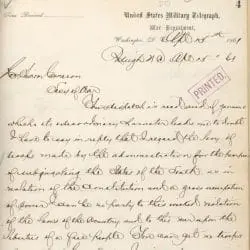 Time Received
United States Military Telegraph,
War Department.
Washington, D.C. Apl 15th 1861
Raleigh NC Apl 15 61
PRINTED
To Simon Cameron
Secy of War
Your dispatch is received if genuine
which its extraordinary character leads me to doubt
I have to say in reply that I regard the levy of
troops made by the administration for the purpose
of subjugating the States of the South, as in
violation of the Constitution and a gross usurpation
of power. I can be no party to this wicked violation
of the laws of the Country and to this war upon the
liberties of a free people. You can get no troops